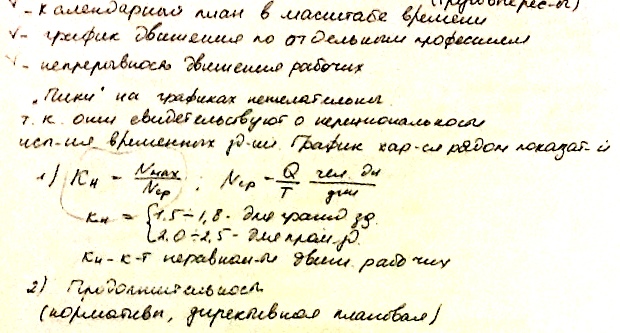 (трудовырес-ы)
v - календарный план в масштабе времени
v - график движения по отдельным профессиям
v - непрерывность движения рабочих
„Пики" на графиках нежелательны
т.к. они свидетельствуют о нерациональном
исп-ия временных зд-ий. График хар-ся рядом показат-й
1) Kн = Nмах/Nср ; Nср = Q/T чел. дн/дни
кн = {1,5÷1,8 - для гражд зд.
{2,0÷2,5 - для пром. зд.
Кн - к-т неравном-ы движ. рабочих
2) Продолжительность
(нормативы, директивная плановая)